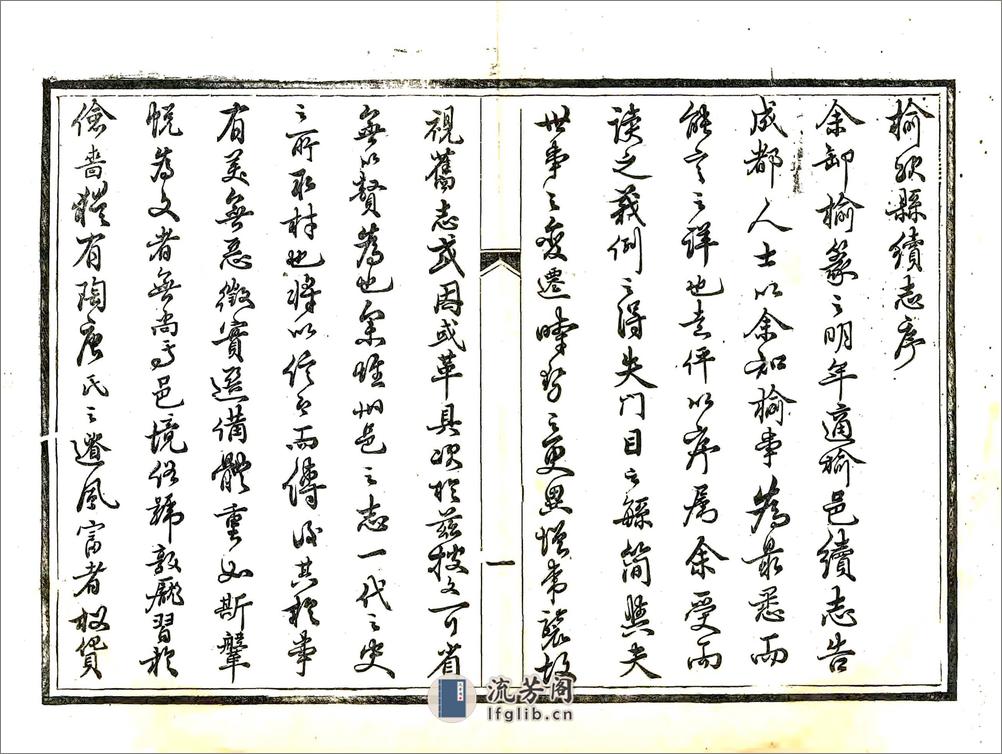 榆次縣續志序
余卸榆篆之明年適榆邑續志告
成都人士以余知榆事為最悉而
能言之詳也走伻以序屬余受而
讀之義例之得失門目之繇簡與夫
世事之變遷時勢之更異增常襲故
視舊志或因或革具次於茲披文可省
無以贅為也余維州邑之志一代之史
之所取材也將以信今而傳後其於事
有美無惡徵實選備體重如斯鞶
帨為文者無尚焉邑境俗號敦龐習於
儉嗇猶有陶唐氏之遺風富者權貨
一
流芳阁
lfglib.cn